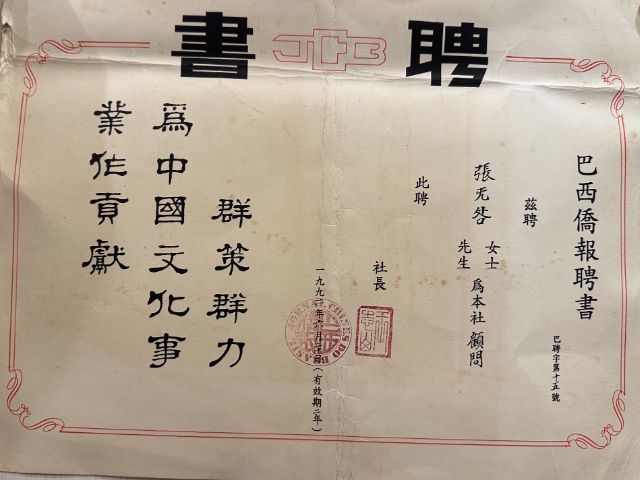 聘書
巴西僑報聘書
巴聘字第十五號
茲聘
張无咎
女士
先生
為本社顧問
此聘
社長
一九九一年六月二十日(有效期二年)
群策群力
為中國文化事
業作貢獻